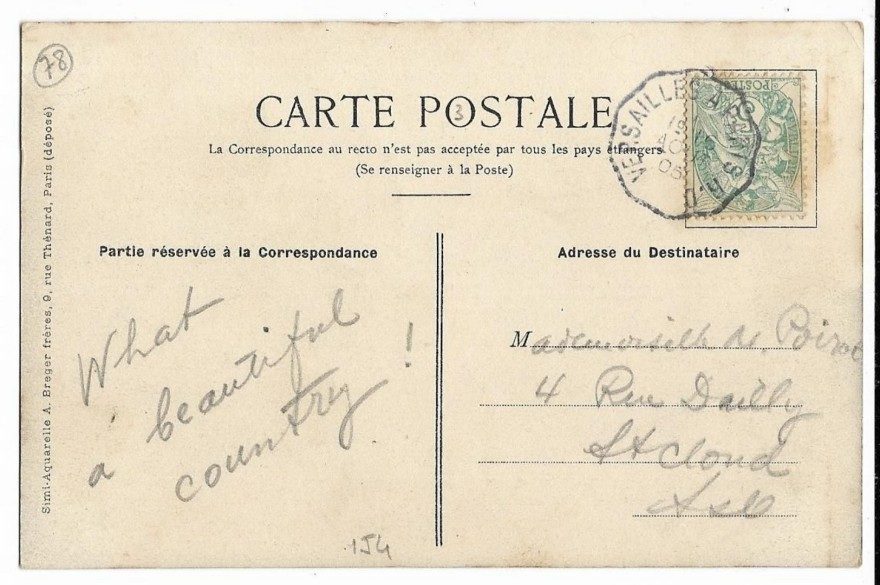 78
CARTE POSTALE
3
La Correspondance au recto n'est pas acceptée par tous les pays étrangers
(Se renseigner à la Poste)
VERSAILLES A PARIS R.D
POSTES
Partie réservée à la Correspondance
What
a beautiful
country !
Adresse du Destinataire
Mademoiselle de Poirot
4 Rue Dailly
St Cloud
S&O
154
Simi-Aquarelle A. Breger frères, 9, rue Thénard, Paris (déposé)